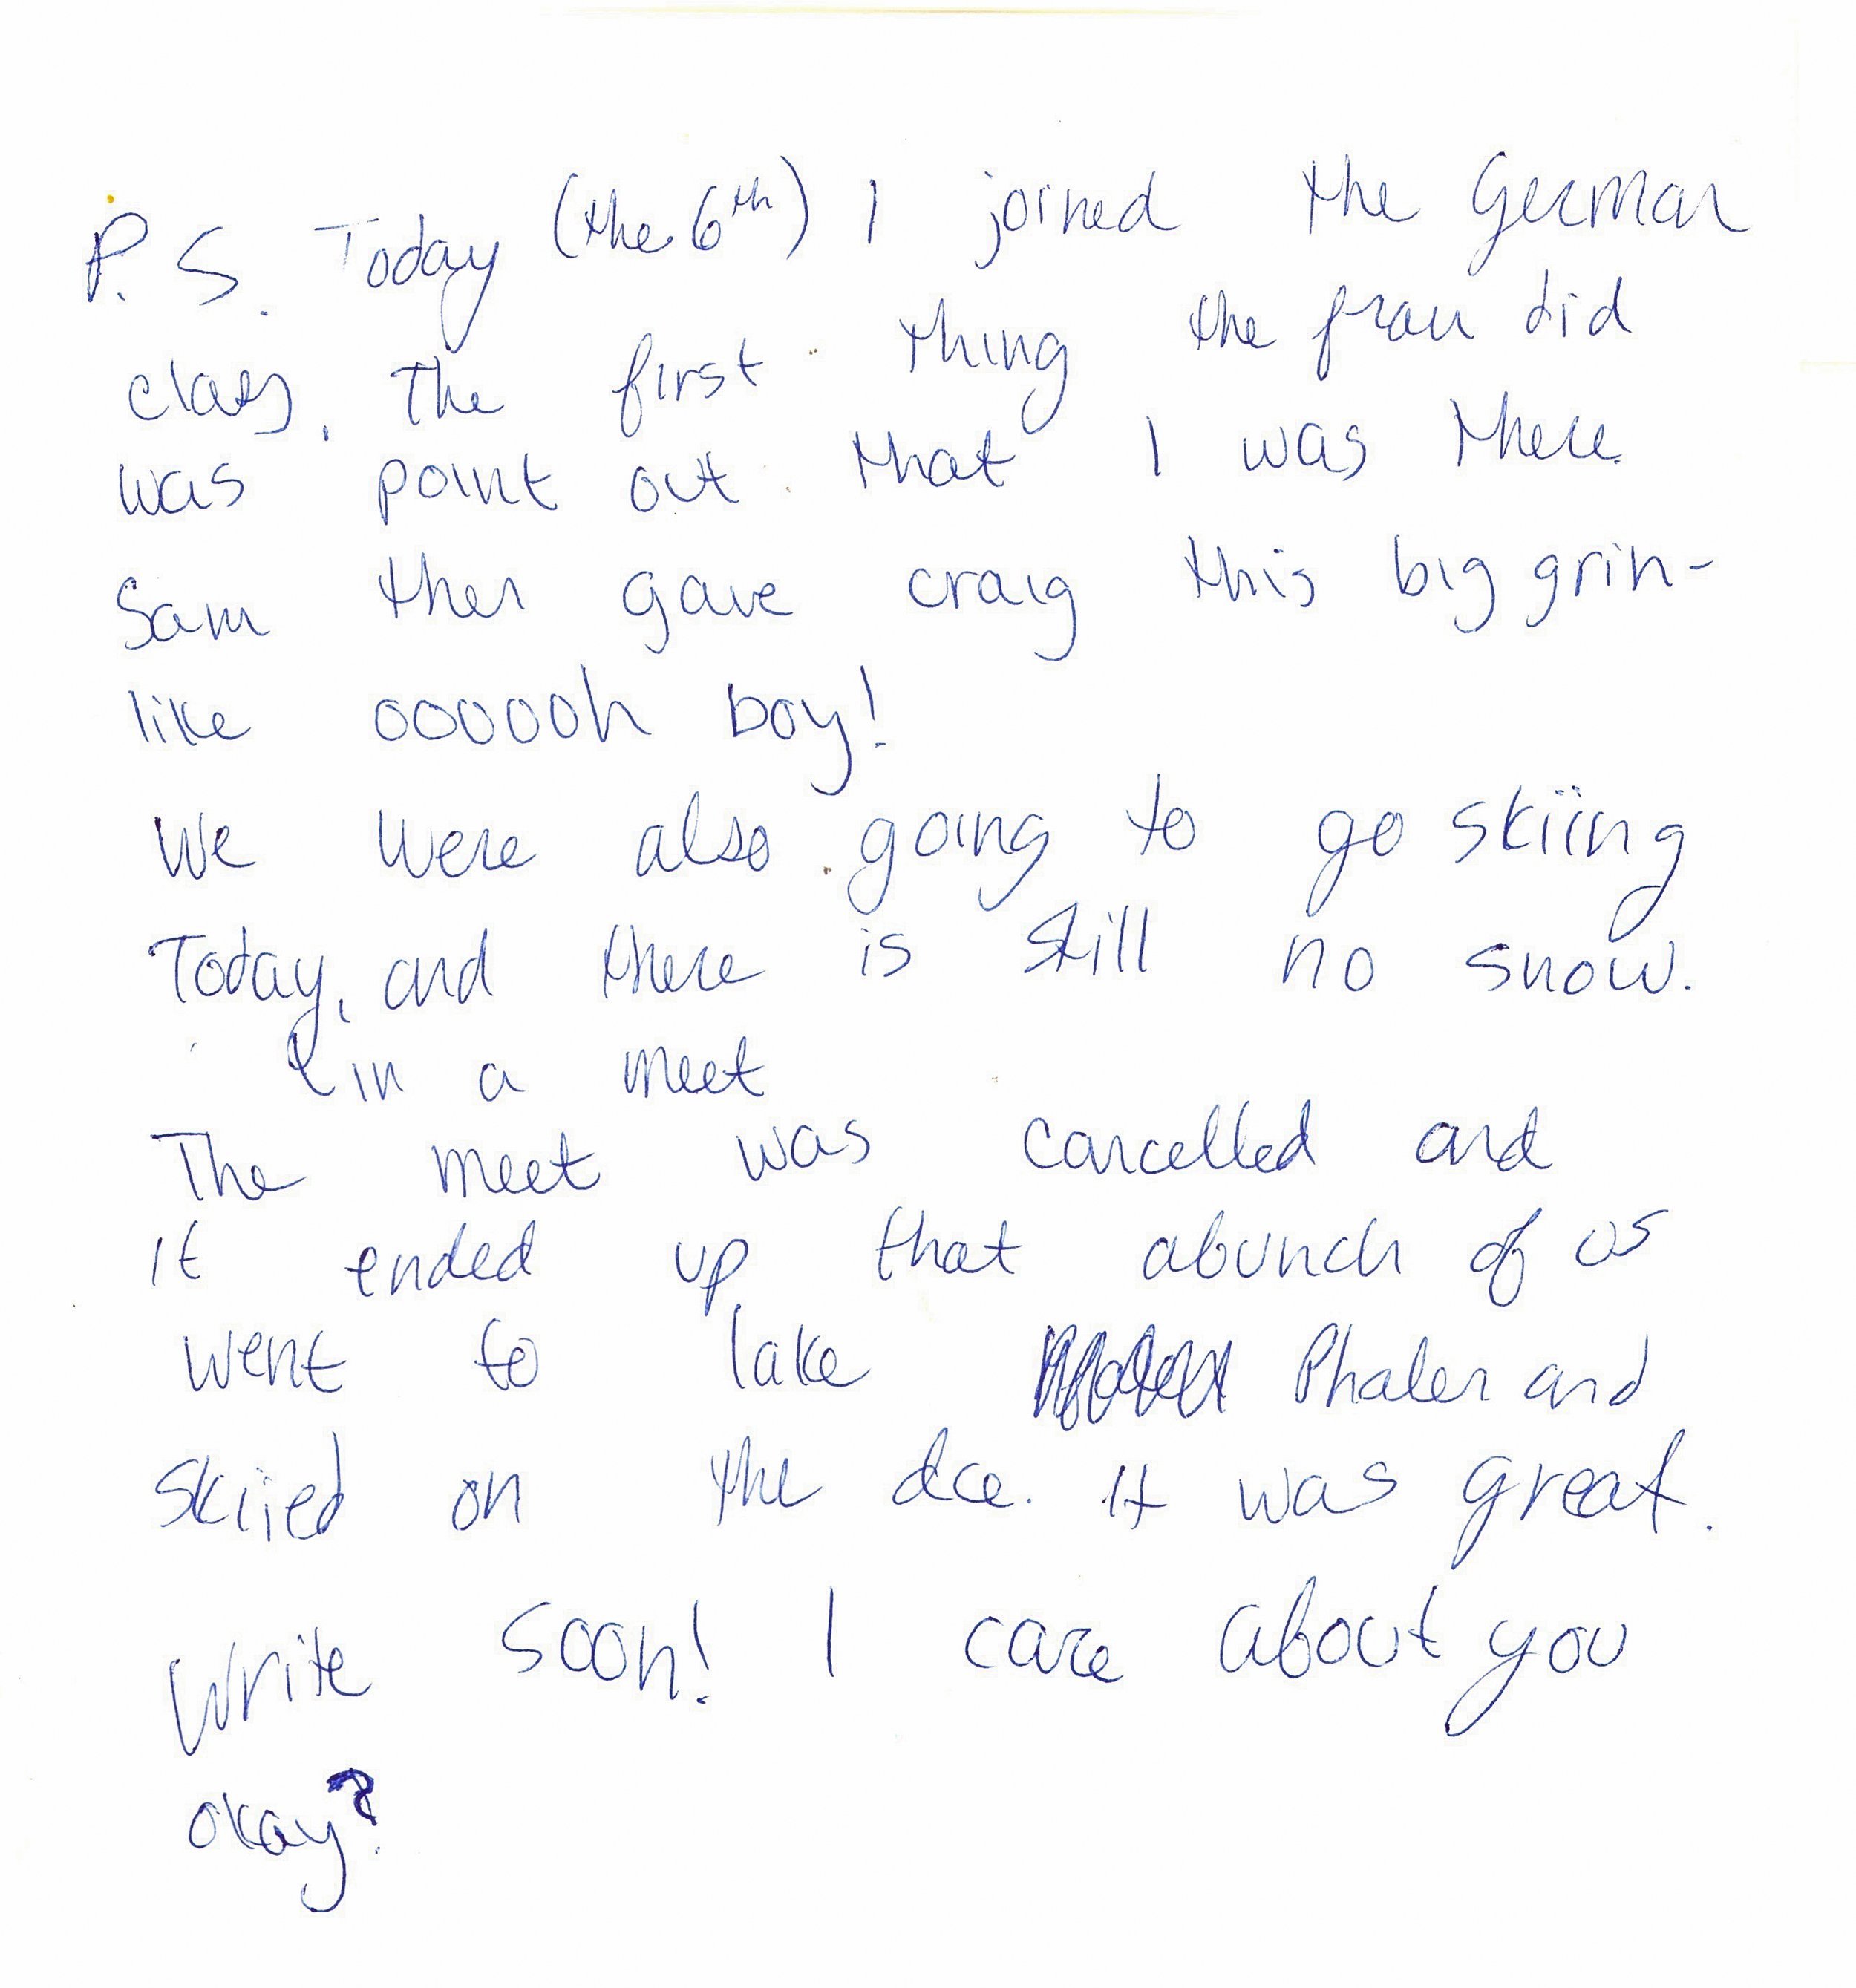 P.S. Today (the 6th) I joined the German
class, the first thing the frau did
was point out that I was there
Sam then gave craig this big grin-
like oooooh boy!
We were also going to go skiing
Today, and there is still no snow.
in a meet
The meet was cancelled and
it ended up that abunch of us
went to lake Phalen and
skiied on the ice. It was great.
Write soon! I care about you
okay?